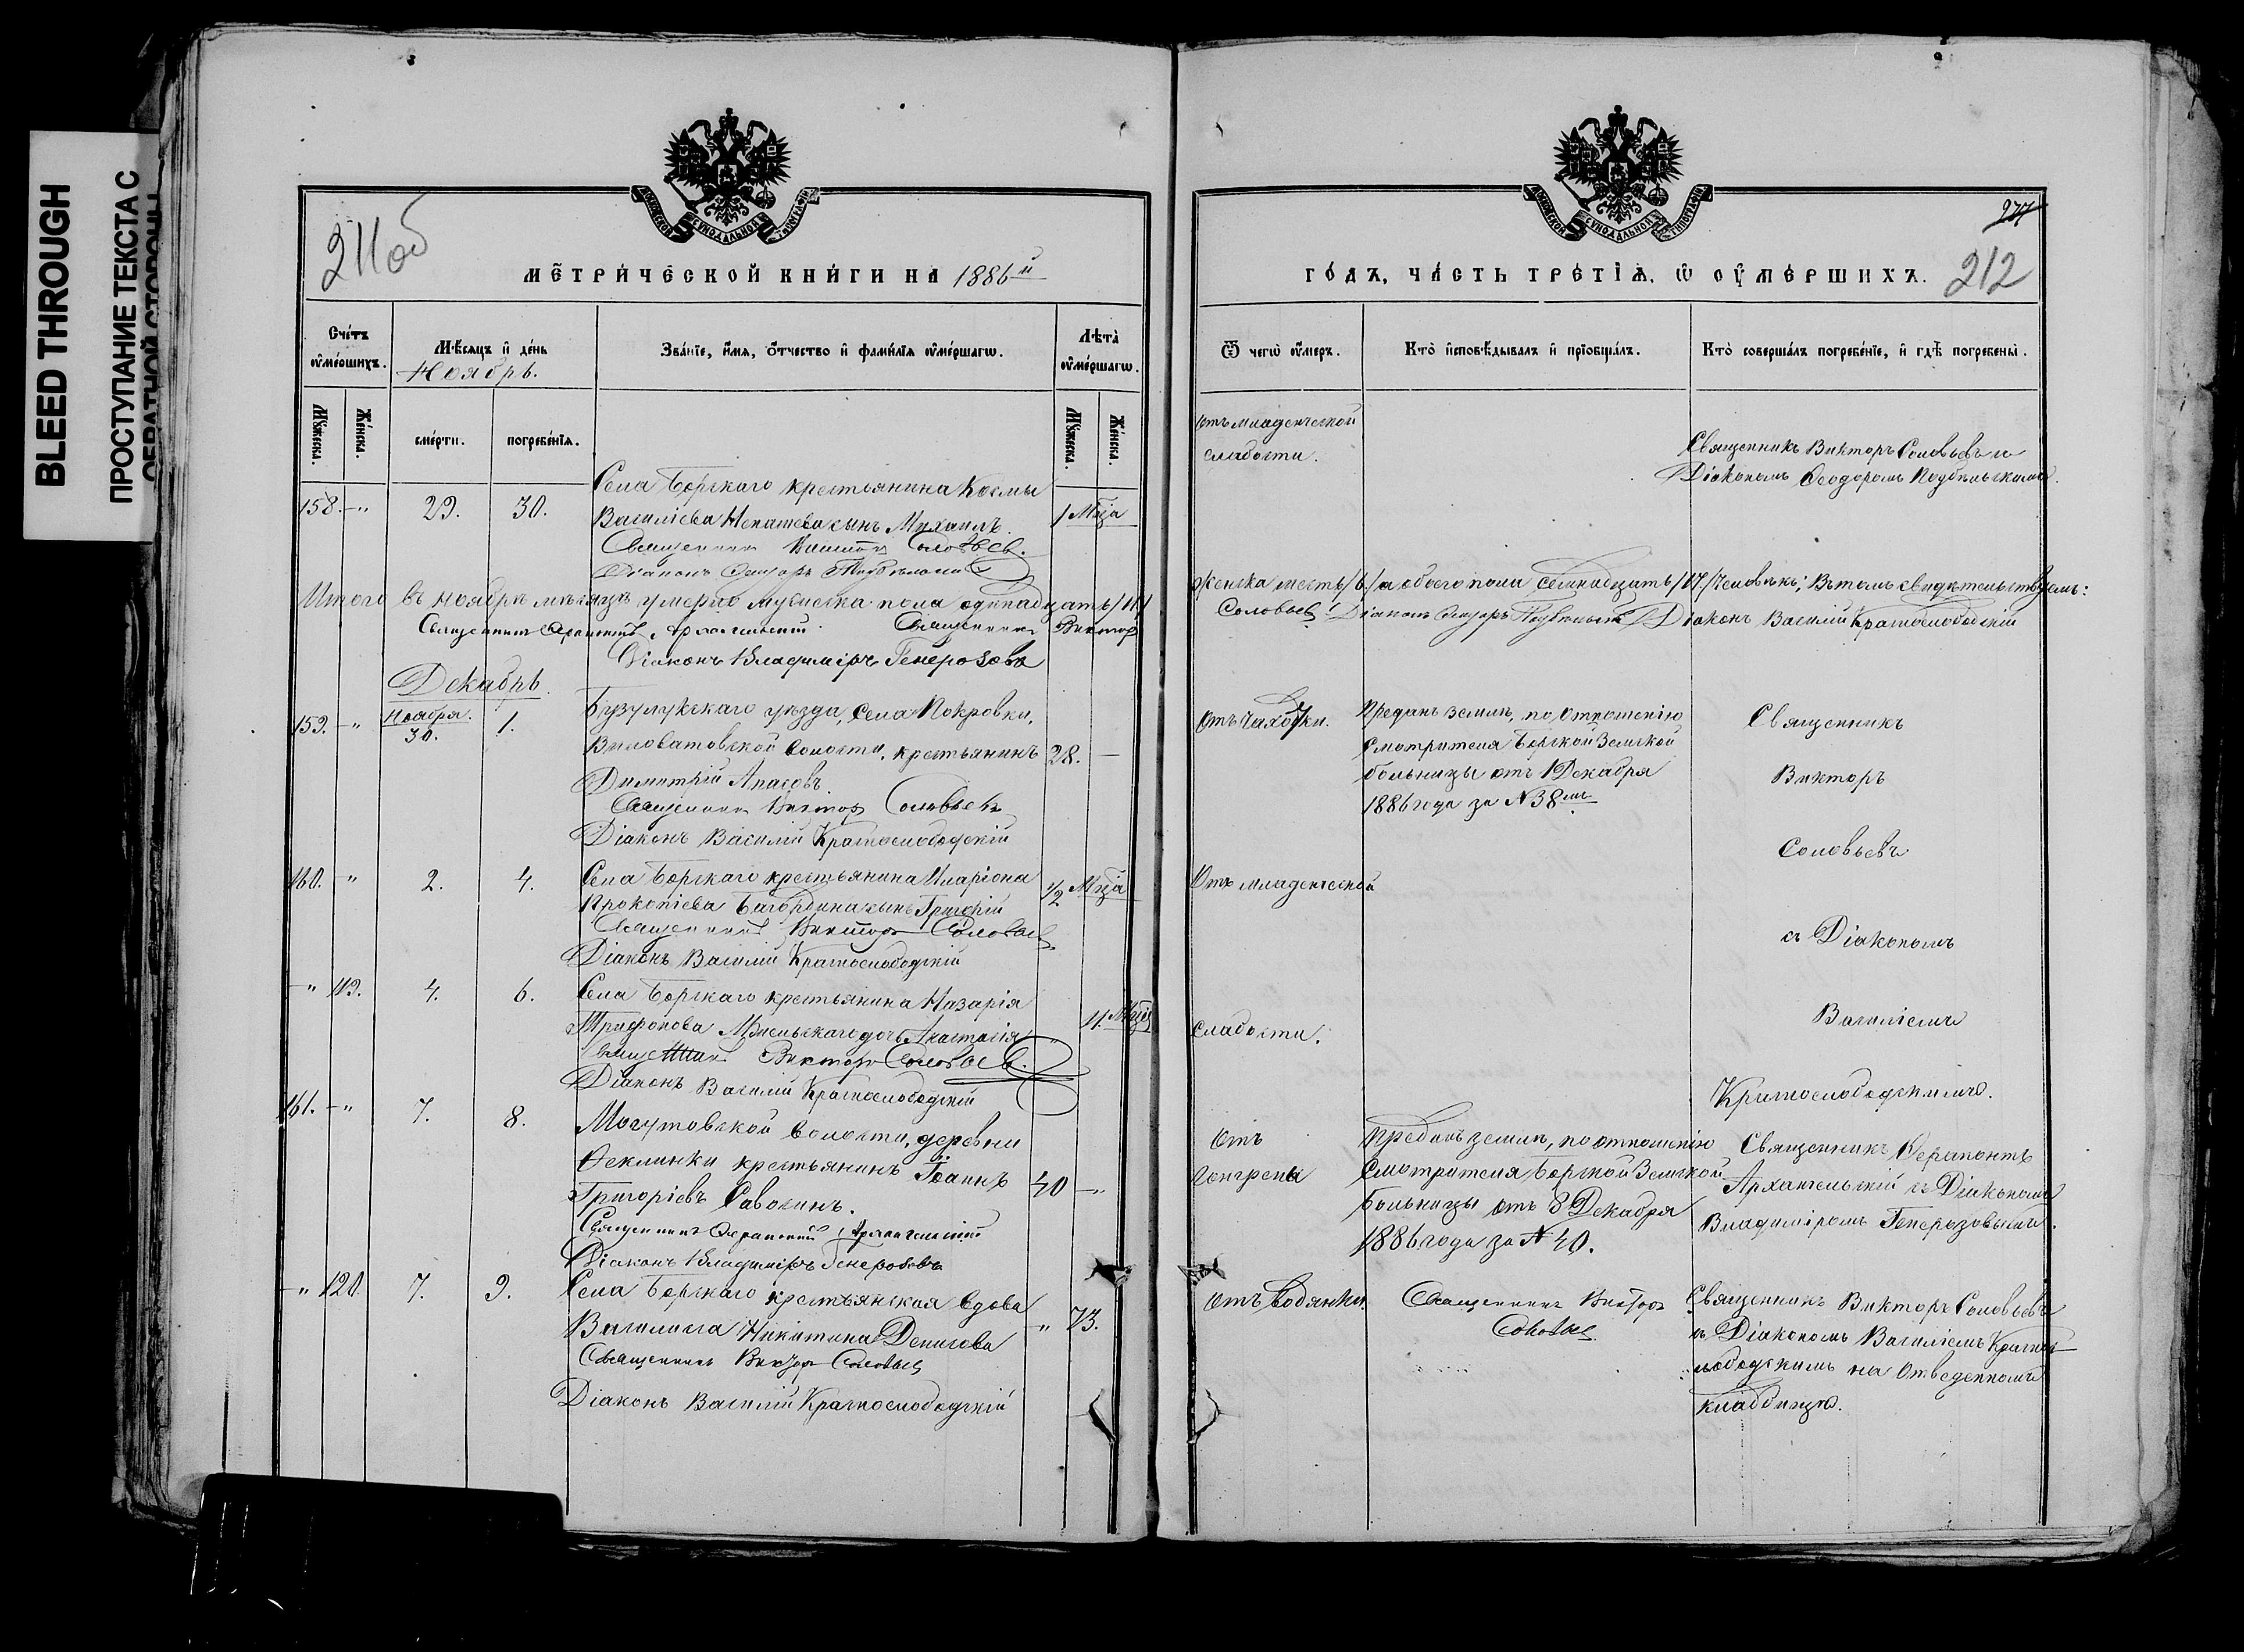 BLEED THROUGH
ПРОСТУПАНИЕ ТЕКСТА С
ОБРАТНОЙ СТОРОНЫ
211об
МЕТРИЧЕСКОЙ КНИГИ НА 1886й
Счетъ умершихъ.
Мѣсяцъ и день
Ноябрь.
Званіе, имя, отчество и фамилія умершагѡ.
Лѣта умершагѡ.
Мужеска.
Женска.
смерти.
погребенія.
Мужеска.
Женска.
158. - " 29. 30.
Села Борскаго крестьянина Космы
Василіева сынъ Михаилъ. 1 Мца
Священникъ Викторъ Соловьев.
Діаконъ Ѳеодоръ
Итого въ ноябрѣ мѣсяцѣ умерло мужеска пола одинадцать /11/
Священникъ Архангельскій Священникъ Викторъ
Діаконъ Владиміръ Генерозовъ
Декабрь.
159. - " Ноября. 30. 1.
Бузулукскаго уѣзда, села Покровки,
Виловатовской волости, крестьянинъ 28. -
Димитрій
Священникъ Викторъ Соловьевъ
Діаконъ Василій Краснослободскій
160. - " 2. 4.
Села Борскаго крестьянина Иларіона 1/2 Мца
Прокопіева сынъ Григорій
Священникъ Викторъ Соловьев
Діаконъ Василій Краснослободскій
- " 119. 4. 6.
Села Борскаго крестьянина Назарія 11. Мцев
Трифонова дочь Анастасія
Священник Викторъ Соловьев.
Діаконъ Василій Краснослободскій
161. - " 7. 8.
Могутовской волости, деревни
Ѳеклинки крестьянинъ Іоаннъ 40 - "
Григоріевъ Савосинъ.
Священникъ Архангельскій
Діаконъ Владиміръ Генерозовъ
- " 120. 7. 9.
Села Борскаго крестьянская вдова
Василиса Никитина Денисова - " 73.
Священникъ Викторъ Соловьев
Діаконъ Василій Краснослободскій
277
212
ГОДЪ, ЧАСТЬ ТРЕТІѦ, Ѡ ОУМЕРШИХЪ.
Ѿ чегѡ умеръ.
Кто исповѣдывалъ и пріобщалъ.
Кто совершалъ погребеніе, и гдѣ погребены.
отъ младенческой
слабости.
Священникъ Викторъ Соловьевъ и
Діакономъ Ѳеодоромъ
женска шесть /6/ а обоего пола семнадцать /17/ человѣкъ; Въ томъ свидѣтельствуемъ:
Соловьев. Діаконъ Ѳеодоръ Діаконъ Василій Краснослободскій
отъ чахотки.
Преданъ землѣ, по отношенію
смотрителя Борской Земской
больницы отъ 1 Декабря
1886 года за № 38мъ
Священникъ
Викторъ
Соловьевъ
съ Діакономъ
Василіемъ
Краснослободскимъ.
Отъ младенческой
слабости.
отъ
гангрены
Преданъ землѣ, по отношенію
смотрителя Борской Земской
больницы отъ 8 Декабря
1886 года за № 40.
Священникъ Ѳерапонтъ
Архангельскій съ Діакономъ
Владиміромъ Генерозовымъ.
отъ водянки.
Священникъ Викторъ
Соловьев
Священникъ Викторъ Соловьевъ
съ Діакономъ Василіемъ Краснос-
лободскимъ на отведенномъ
кладбищѣ.